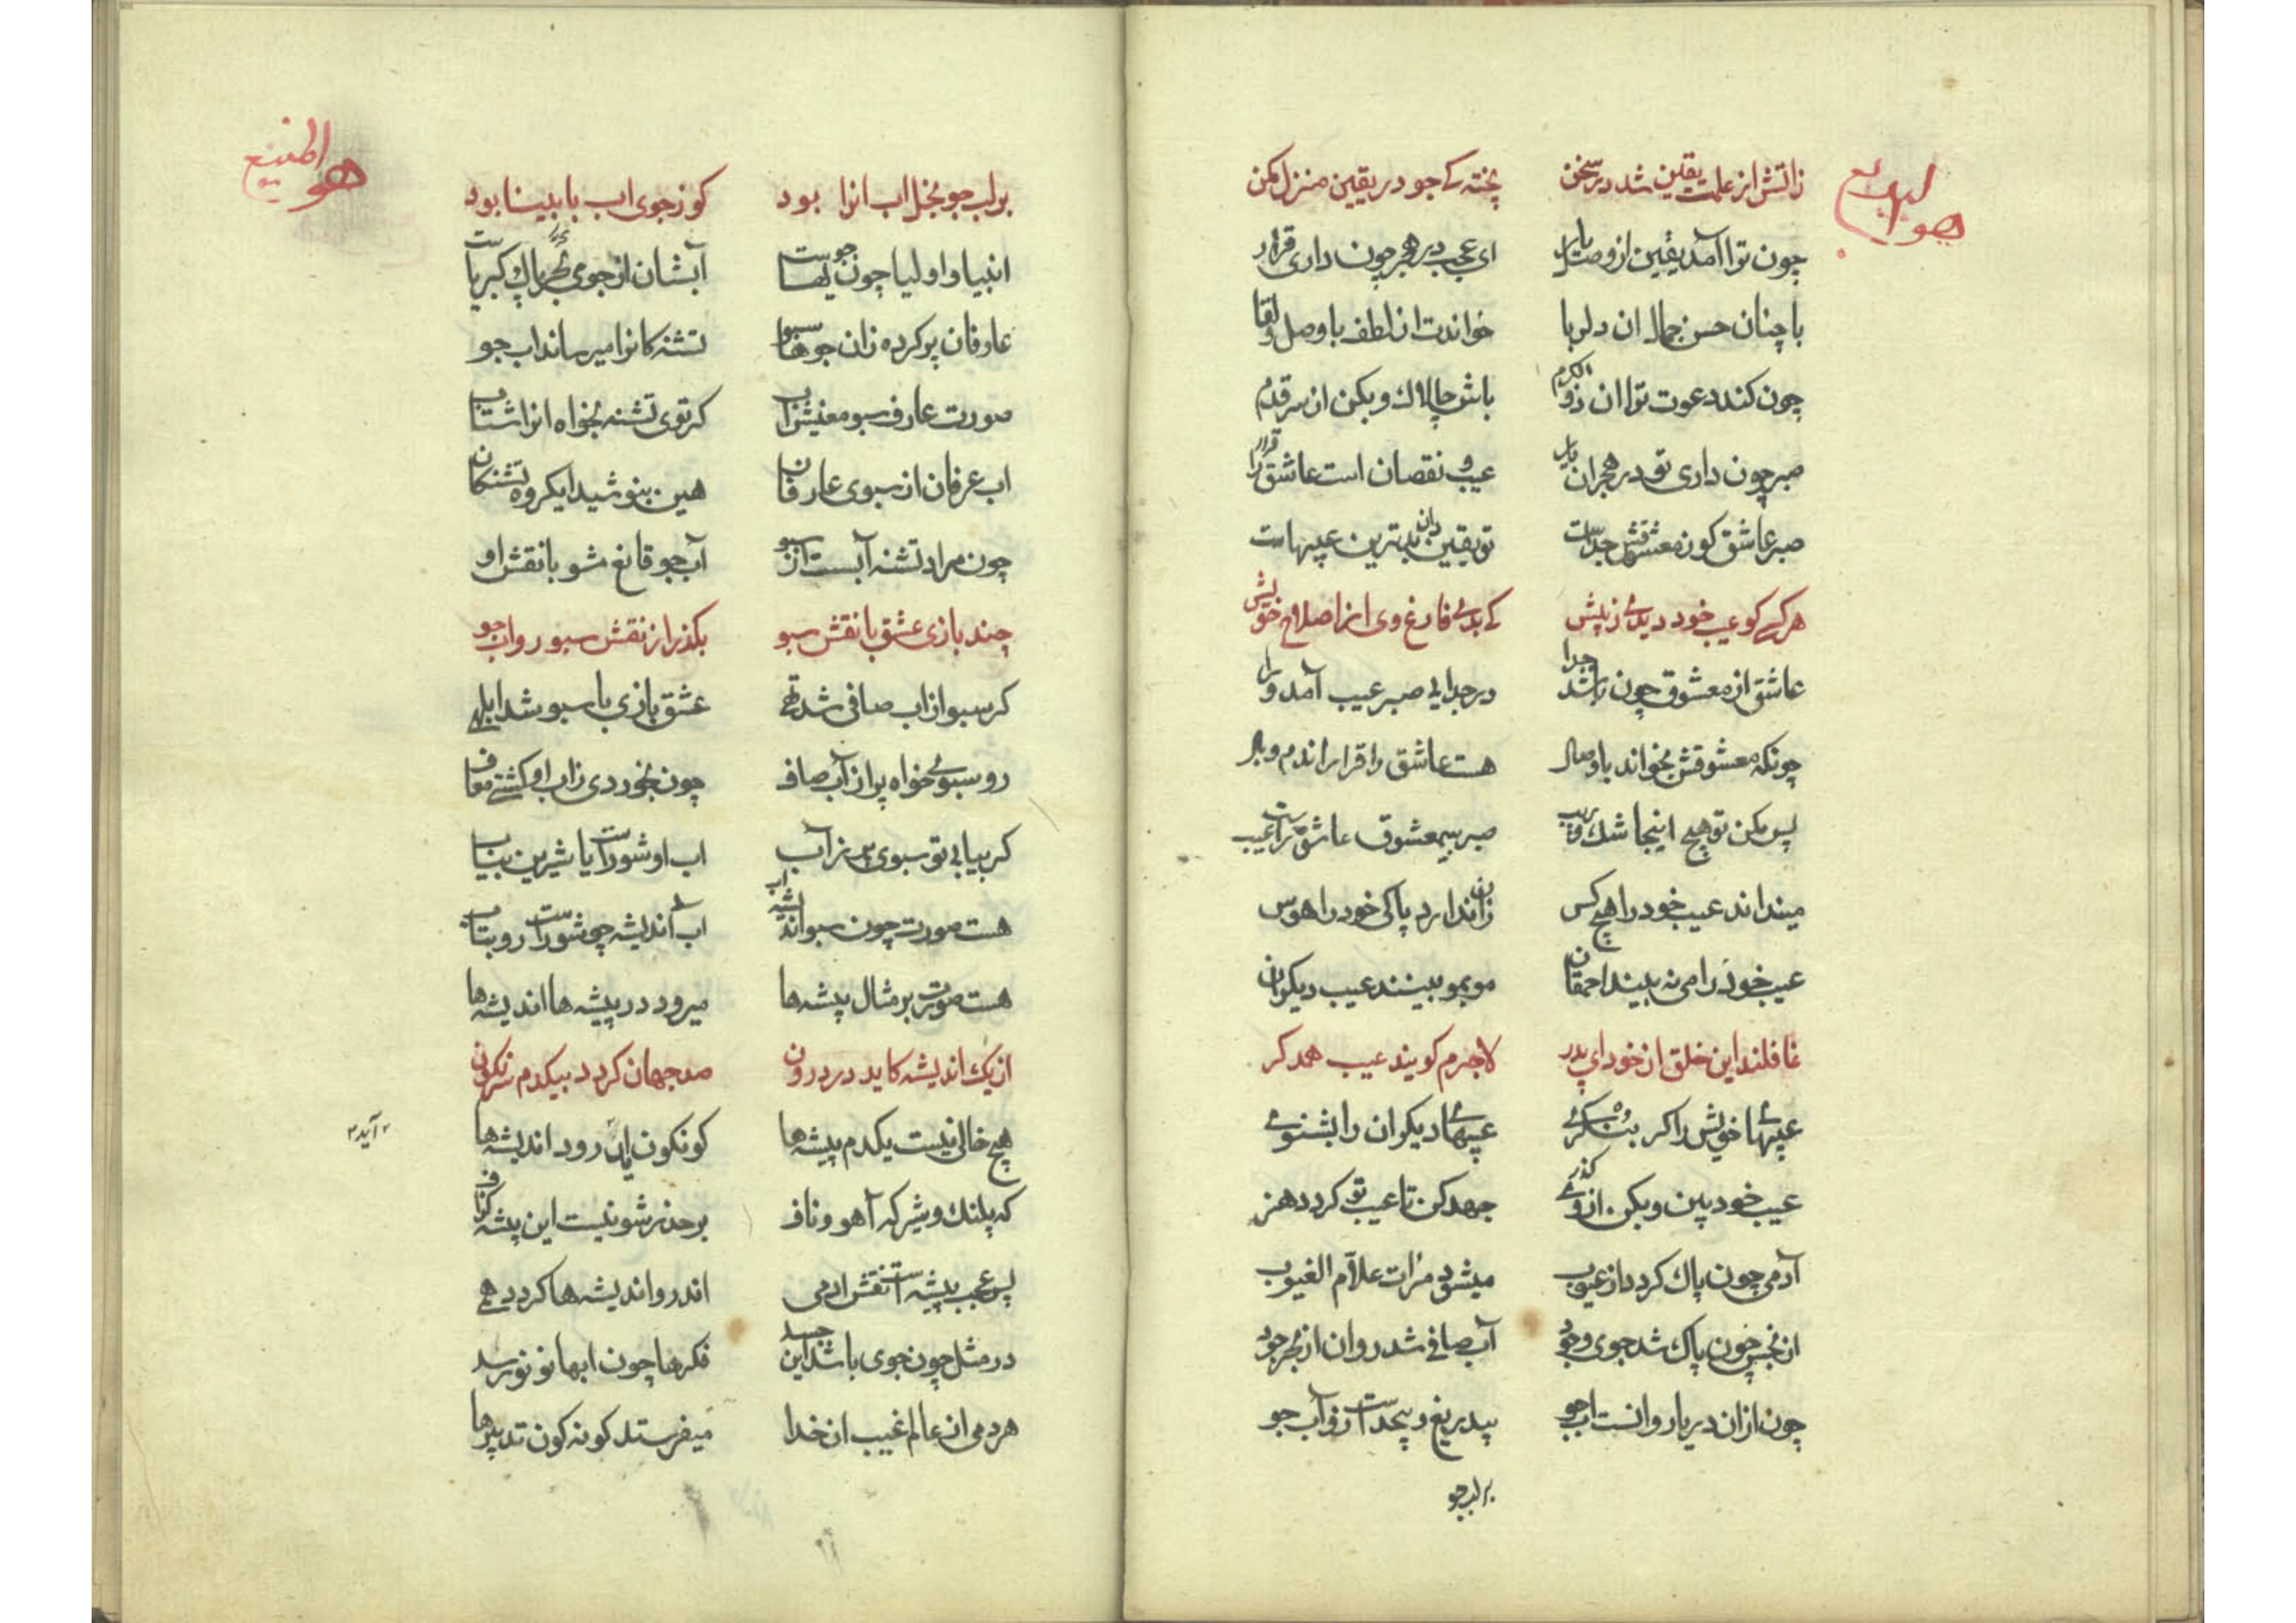 زاتش از علمت یقین شد در سخن پخته کی جو در یقین منزل مکن
چون ترا آمد یقین از وصل یار ای عجب در هجر چون داری قرار
با چنان حسن جمال ان دلربا خواندت از لطف با وصل و لقا
چون کند دعوت ترا ان ذو الکرم باش چالاک و بکن از سر قدم
صبر چون داری تو در هجران یار عیب و نقصان است عاشق را قرار
صبر عاشق کو ز معشوقش جداست تو یقین دان بدترین عیبهاست
هر کسی کو عیب خود دیدی ز پیش کی بدی فارغ وی از اصلاح خویش
عاشق از معشوق چون باشد جدا در جدایی صبر عیب آمد ورا
چونکه معشوقش بخواند با وصال هست عاشق را قرار اندم وبال
پس مکن تو هیچ اینجا شک و ریب صبر بیمعشوق عاشق راست عیب
مینداند عیب خود را هیچ کس زان ندارد پاکی خود را هوس
عیب خود را می نه بیند احمقان موبمو بینند عیب دیکران
غافلند این خلق از خود ای پدر لاجرم کویند عیب همدکر
عیبهای خویش را کر بنکری عیبهای دیکران را نشنوی
عیب خود بین و بکن از وی کذر جهد کن تا عیب تو کردد هنر
آدمی چون پاک کردد از عیوب میشود مرات علام الغیوب
از نجس چون پاک شد جوی وجود آب صافی شد روان از بحر جود
چون ازان دریا روانست اب جو بیدریغ و بیحدست آن آب جو
بر لب جو
هو المنیع
بر لب جو بخل اب انرا بود کو ز جوی اب نابینا بود
انبیا و اولیا چون جویهاست آبشان از جوی بحر پاک کبریاست
عارفان پر کرده زان جوها سبو تشنه کانرا میرساند اب جو
صورت عارف سبو معنیش اب کر توی تشنه بخواه انرا شتاب
اب عرفان از سبوی عارفان هین بنوشید ایکروه تشنکان
چون مراد تشنه آبست از سبو آب جو قانع مشو با نقش او
چند بازی عشق با نقش سبو بکذر از نقش سبو رو اب جو
کر سبو از اب صافی شد تهی عشق بازی با سبو شد ابلهی
رو سبویی خواه پر از آب صاف چون بخوردی زاب او کشتی معاف
کر بیابی تو سبوی پر ز آب اب او شورست یا شیرین بیاب
هست صورت چون سبو اندیشه اب اب اندیشه چو شورست رو بتاب
هست صورت بر مثال بیشه ها میرود در بیشه ها اندیشه ها
از یک اندیشه کاید در درون صد جهان کردد بیکدم سرنکون
هیچ خالی نیست یکدم بیشه ها کونکون اید رود اندیشه ها
آید
که پلنک و شیر که آهو و ناف بر حذر شو نیست این بیشه کزاف
پس عجب بیشه است نقش ادمی اندرو اندیشه ها کردد همی
در مثل چون جوی باشد این جسد فکرها چون ابها نو نو رسد
هر دمی از عالم غیب ان خدا میفرستد کونه کون تدبیرها